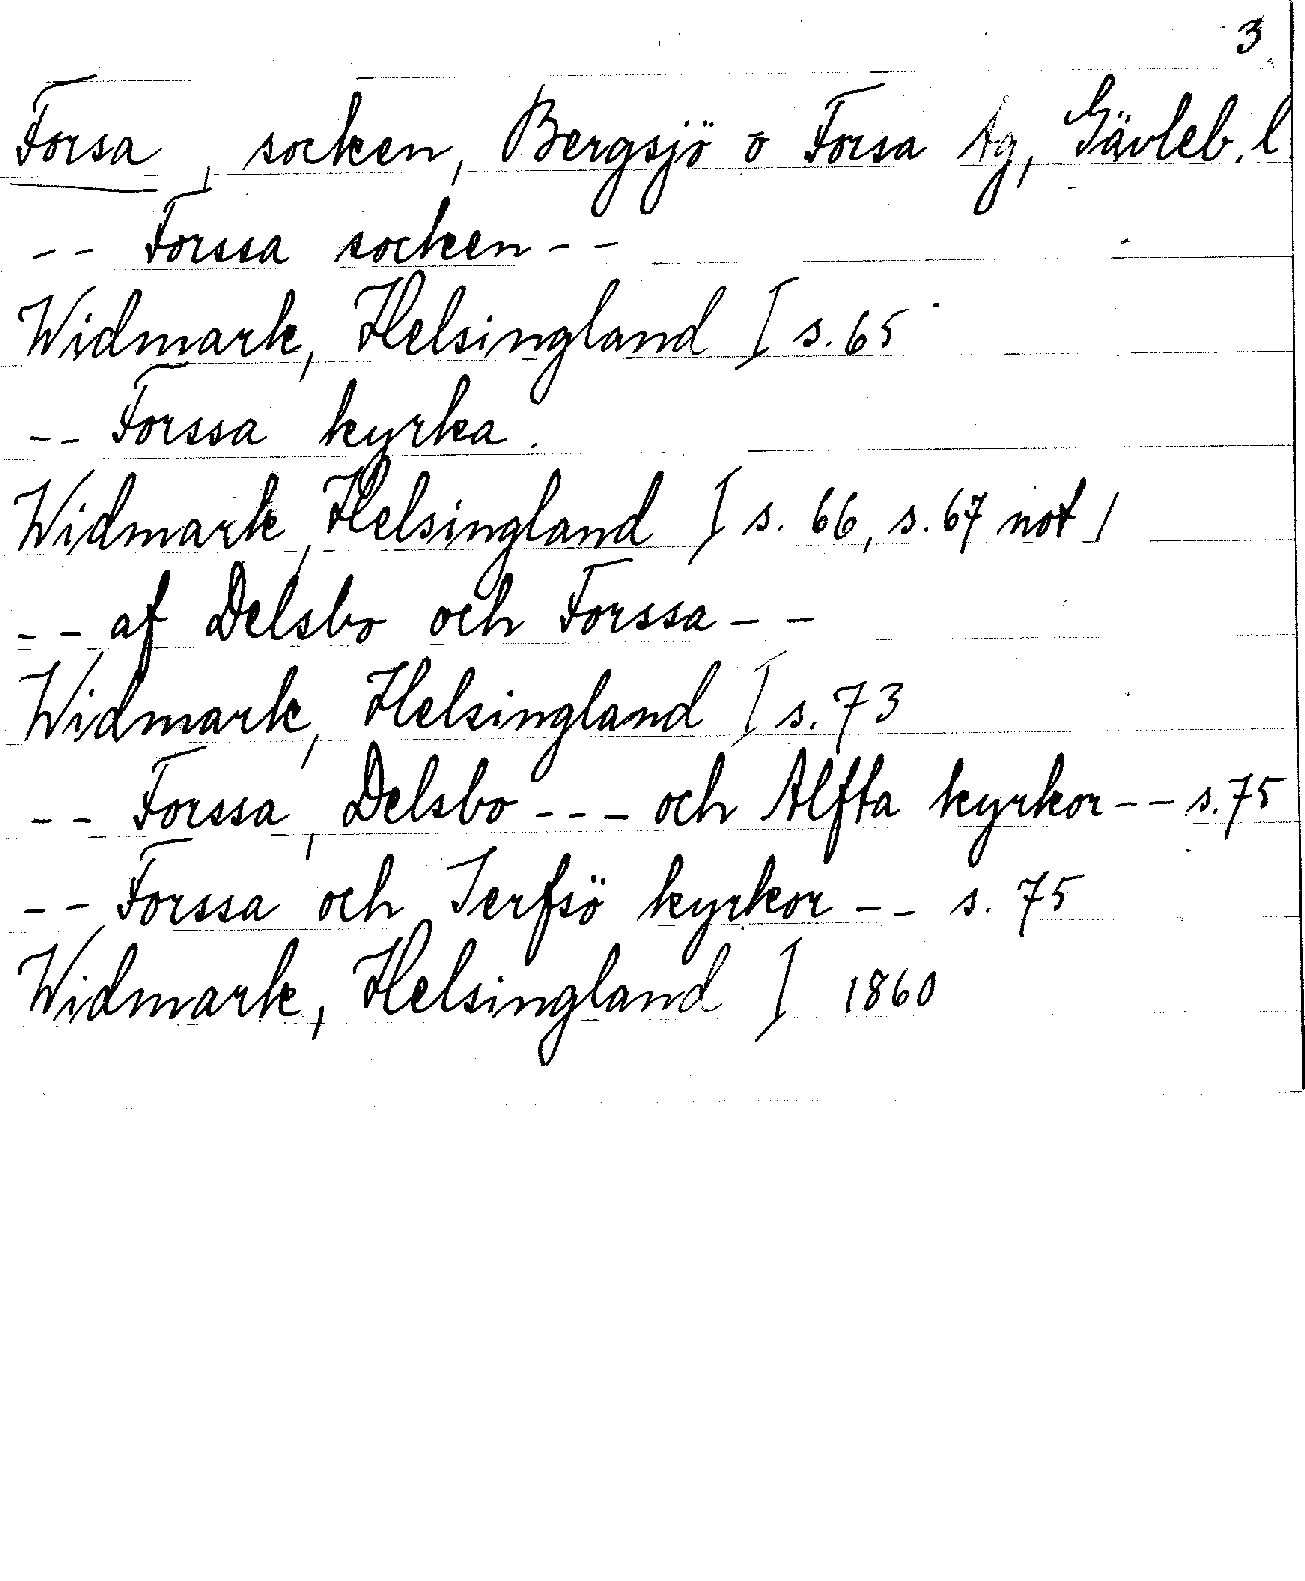 3
Forsa, socken, Bergsjö o Forsa tg, Gävleb. l
-- Forssa socken --
Widmark, Helsingland I s. 65
-- Forssa kyrka.
Widmark, Helsingland I s. 66, s. 67 not /
-- af Delsbo och Forssa --
Widmark, Helsingland I s. 73
-- Forssa, Delsbo --- och Alfta kyrkor -- s. 75
-- Forssa och Jerfsö kyrkor -- s. 75
Widmark, Helsingland I 1860